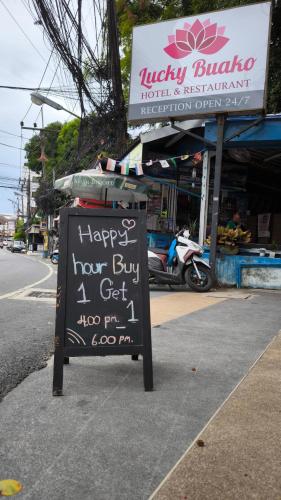 Lucky Buako
HOTEL & RESTAURANT
RECEPTION OPEN 24/7
Happy
hour Buy
1 Get
4.00 pm. 1
6.00 PM.